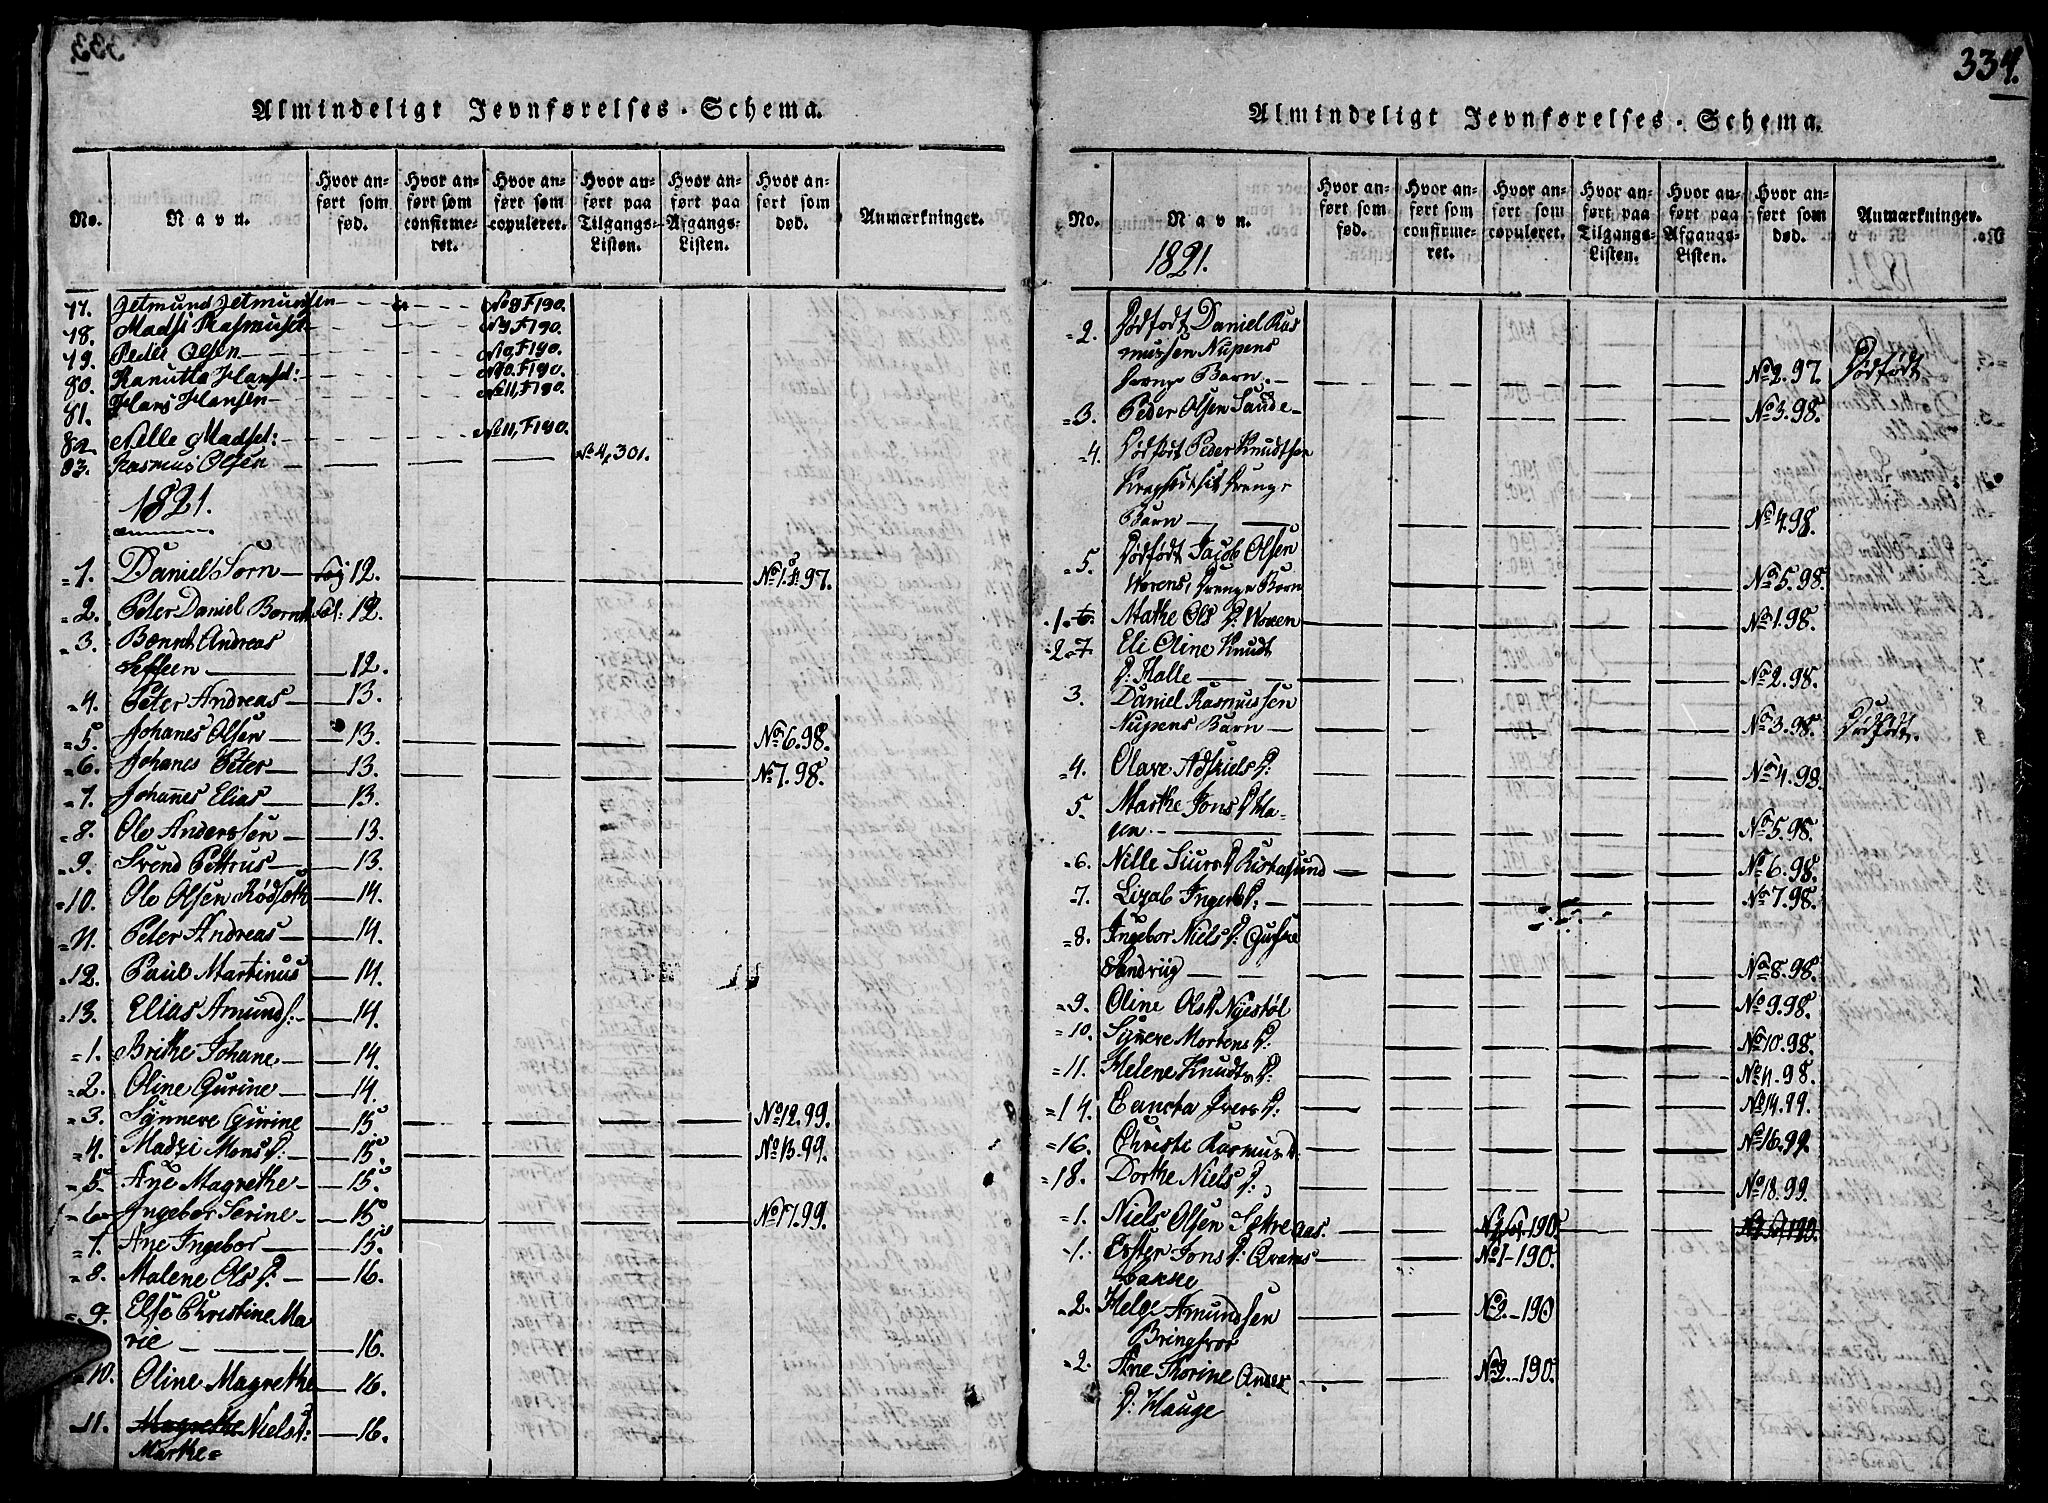 333.
Almindeligt Jevnførelses-Schema.
No.
Navn.
Hvor anført som fød.
Hvor anført som confirmeret.
Hvor anført som copuleret.
Hvor anført paa Tilgangs-Listen.
Hvor anført paa Afgangs-Listen.
Hvor anført som død.
Anmærkninger.
77. Jetmund Jetmundsen No 9, F190.
78. Madsi Rasmusd: No 9, F190.
79. Peder Olsen No 10, F190.
80. Hansd: No 10, F190.
81. Hans Hansen No 11, F190.
82. Nille Madsd: No 11, F190.
83. Rasmus Olsen No 4, 301.
1821.
=1. Daniel Sørn 12. 97.
=2. Peter Daniel 12.
=3. Bernt Andreas
Steffen 12.
=4. Peter Andreas 13.
=5. Johanes Olsen 13. No 6. 98.
=6. Johanes Peter 13. No 7. 98.
=7. Johannes Elias 13.
=8. Ole Anderssen 13.
=9. Svend Pettrus 13.
=10. Ole Olsen Rødseth 14.
=11. Peter Andreas 14.
=12. Paul Martinus 14.
=13. Elias Amunds: 14.
=1. Brithe Johane 14.
=2. Oline Gurine 14.
=3. Synneve Gurine 15 No 12. 99.
=4. Madzi Mons D: 15. No 13. 99.
=5. Ane Magrethe 15
=6. Ingebor Serine 15 No 17. 99.
=7. Ane Ingebor 15.
=8. Malene Ols D: 16.
=9. Else Christine Ma
rie 16.
=10. Oline Magrethe 16.
=11. Magrethe Nielsd:
Marthe= 16.
334.
Almindeligt Jevnførelses-Schema.
No.
Navn.
Hvor anført som fød.
Hvor anført som confirmeret.
Hvor anført som copuleret.
Hvor anført paa Tilgangs-Listen.
Hvor anført paa Afgangs-Listen.
Hvor anført som død.
Anmærkninger.
1821.
=2. Dødfødt Daniel Ras
mussen Nupens
Drenge Barn. No 2. 97. Dødfødt
=3. Peder Olsen Saude No 3. 98.
=4. Dødfødt Peder Knudtsen
Drenge
Barn No 4. 98.
=5. Dødfødt Jacob Olsen
Vorens Drenge Barn No 5. 98.
1. 6. Mathe Ols D: Voren No 1. 98.
2=7 Eli Oline Knudt
D: Halle No 2. 98.
3. Daniel Rasmussen
Nupens Barn No 3. 98. Dødfødt.
=4. Olave D: No 4. 98
5. Marthe Jons D Ha
gen No 5. 98.
=6. Nille Siurs D No 6. 98.
=7. Lizab Ingebr D: No 7. 98.
=8. Ingebor Niels D:
Sandviig No 8. 98.
=9. Oline Ols D Nyestøl No 9. 98.
=10. Synneve Mortens D: No 10. 98.
=11. Helene Knudts D: No 11. 98.
=14. Ivers D: No 14. 99.
=16. Christe Rasmus D. No 16. 99.
=18. Dorthe Niels D: No 18. 99.
=1. Niels Olsen Sætreaas. 190.
=1. Ester Jons D:
bakke No 1-190.
=2. Helge Amundsen
Bringsvor No 2-190
=2. Ane Thorine
D: Hauge No 2-190.